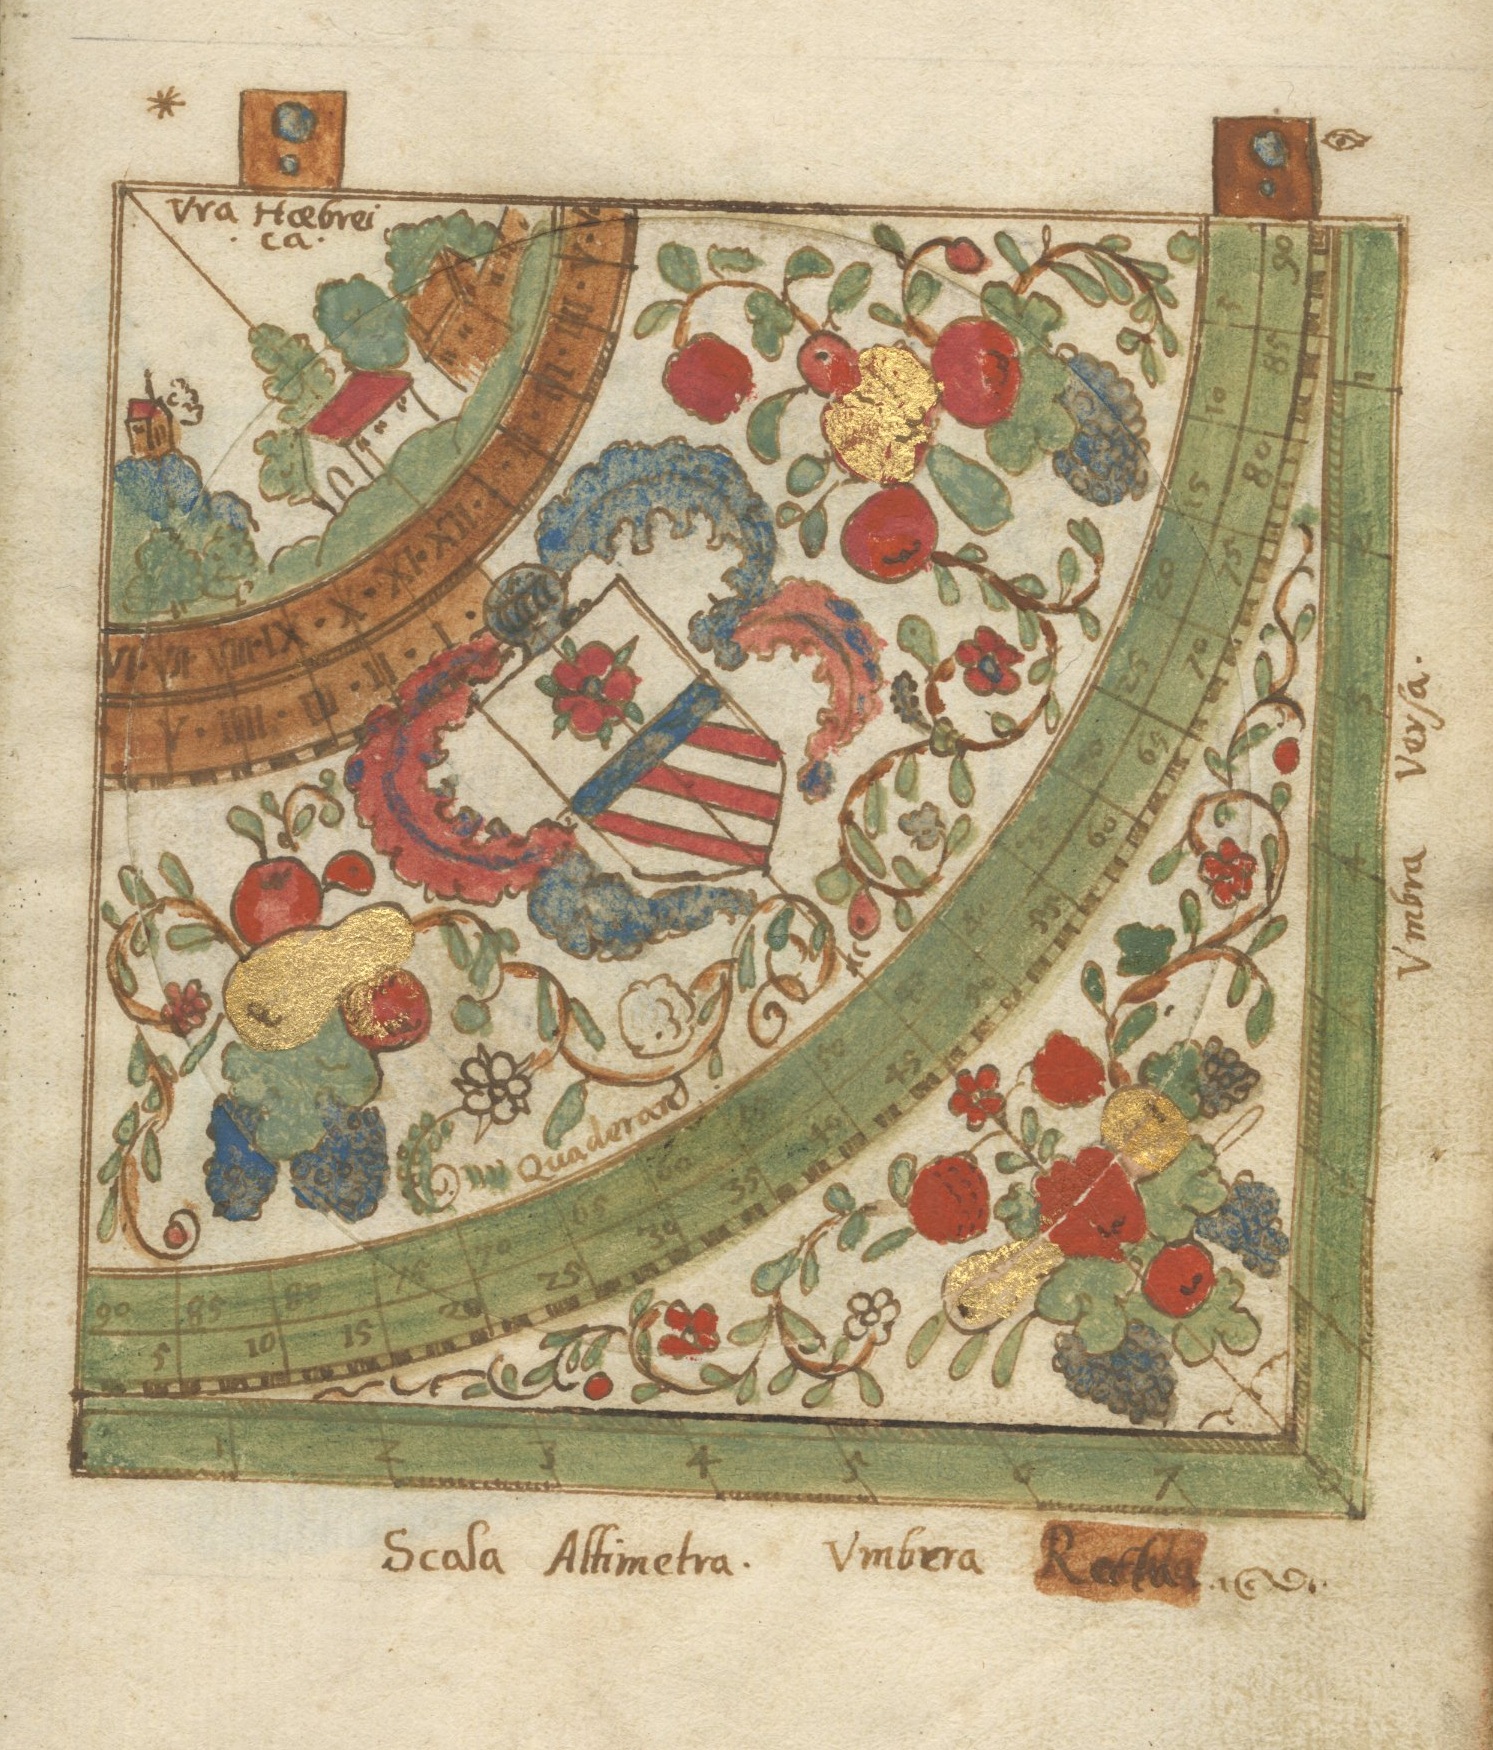 Vra Hæbrei
ca.
VI · VII · VIII · IX · X · XI · XII · I · II · III
V · IIII · III · II · I
Quaderant
5 10 15 20 25 30 35 40 45 50 55 60 65 70 75 80 85 90
90 85 80 75 70 65 60 55 50 45 40 35 30 25 20 15 10 5
1 2 3 4 5 6 7
Vmbra Versa.
Scala Altimetra. Vmbrera Rectua